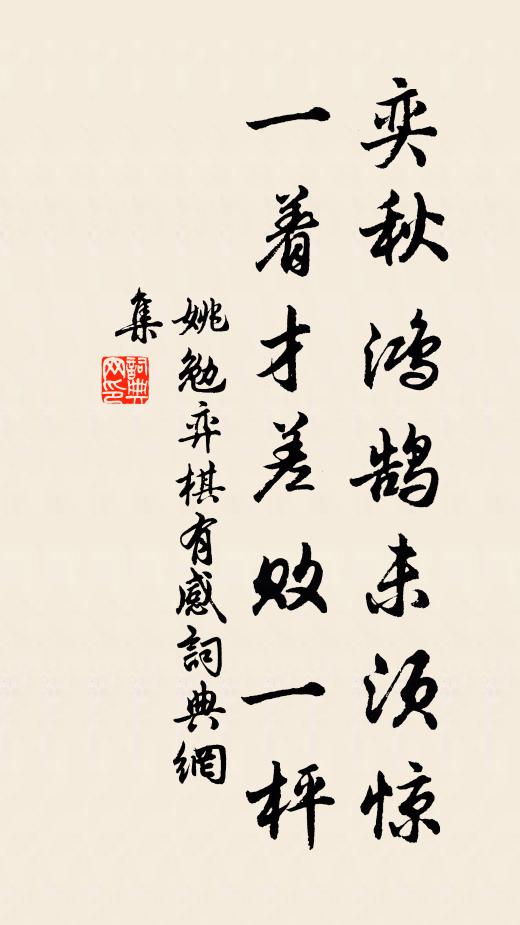 奕秋鸿鹄未须惊
一着才差败一枰
姚勉弈棋有感詞典網
集
詞典网印